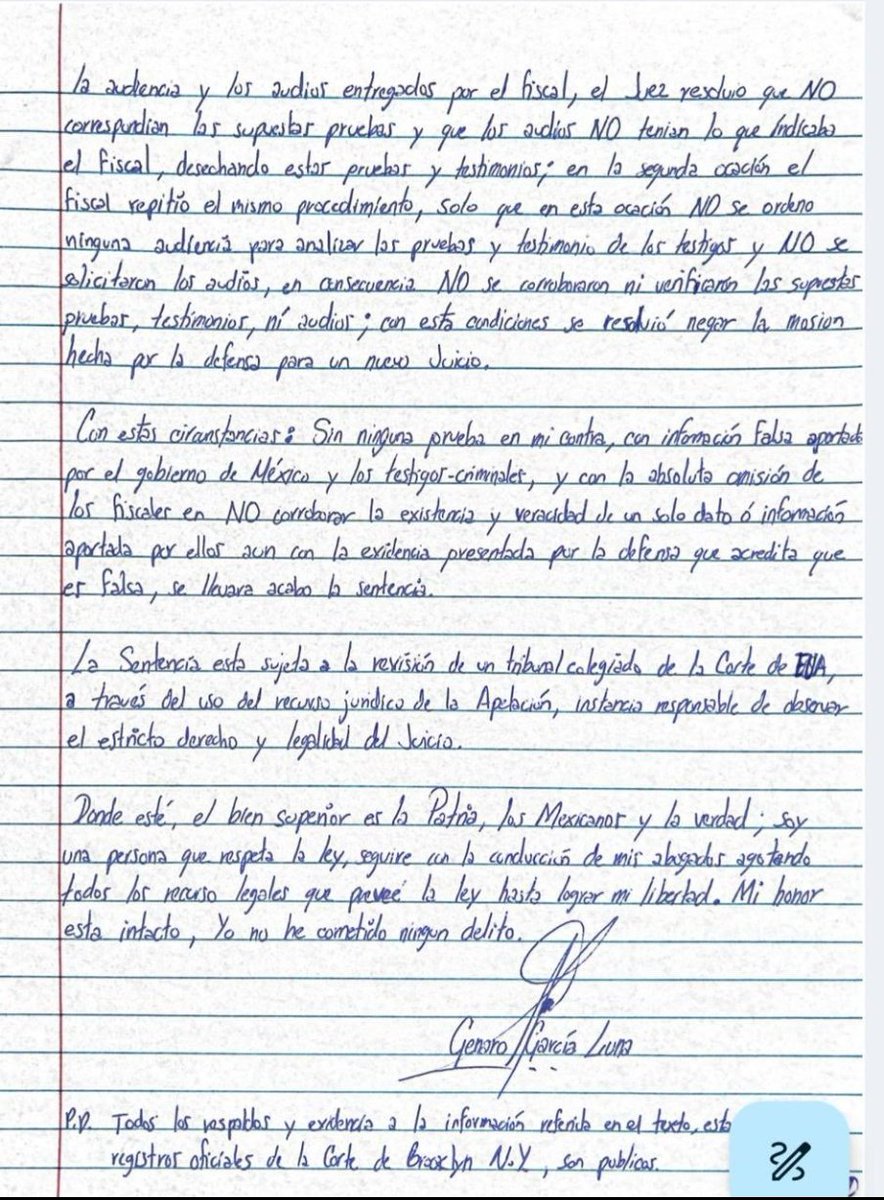 la audiencia y los audios entregados por el fiscal, el Juez resolvio que NO
correspondian las supuestas pruebas y que los audios NO tenian lo que indicaba
el fiscal, desechando estas pruebas y testimonios; en la segunda ocación el
fiscal repitio el mismo procedimiento, solo que en esta ocación NO se ordeno
ninguna audiencia para analizar las pruebas y testimonio de los testigos y NO se
solicitaron los audios, en consecuencia NO se corroboraron ni verificaron las supuestas
pruebas, testimonios, ni audios; con esta condiciones se resolvió negar la mosion
hecha por la defensa para un nuevo Juicio.
Con estas circunstancias: Sin ninguna prueba en mi contra, con infomación falsa aportada
por el gobierno de México y los testigos-criminales, y con la absoluta omisión de
los fiscales en NO corroborar la existencia y veracidad de un solo dato ó información
aportada por ellos aun con la evidencia presentada por la defensa que acredita que
es falsa, se llevara acabo la sentencia.
La Sentencia esta sujeta a la revisión de un tribunal colegiado de la Corte de EUA,
a través del uso del recurso juridico de la Apelación, instancia responsable de observar
el estricto derecho y legalidad del Juicio.
Donde esté, el bien superior es la Patria, los Mexicanos y la verdad; soy
una persona que respeta la ley, seguire con la conducción de mis abogados agotando
todos los recurso legales que preveé la ley hasta lograr mi libertad. Mi honor
esta intacto, Yo no he cometido ningun delito.
Genaro García Luna
P.D. Todos los respaldos y evidencia a la información referida en el texto, esta
registros oficiales de la Corte de Brooklyn N.Y, son publicas.